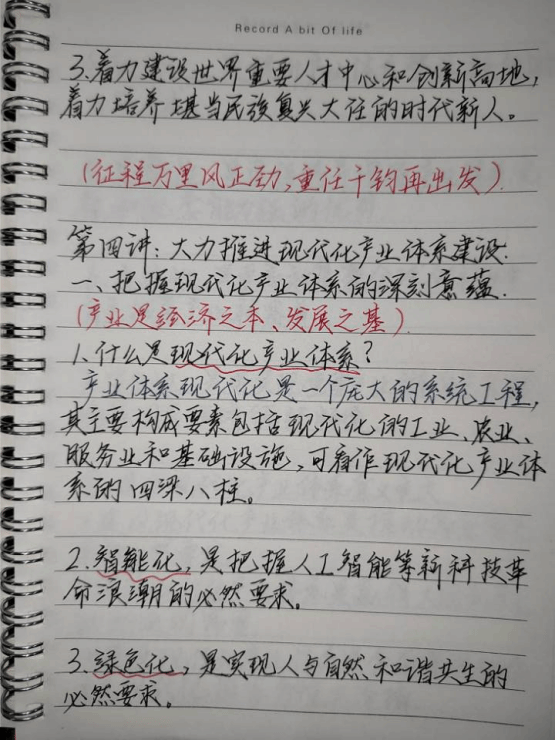 Record A bit Of life
3.着力建设世界重要人才中心和创新高地,
着力培养堪当民族复兴大任的时代新人。
(征程万里风正劲,重任千钧再出发).
第四讲:大力推进现代化产业体系建设.
一、把握现代化产业体系的深刻意蕴.
(产业是经济之本、发展之基)
1.什么是现代化产业体系?
产业体系现代化是一个庞大的系统工程,
其主要构成要素包括现代化的工业、农业、
服务业和基础设施,可看作现代化产业体
系的四梁八柱。
2.智能化,是把握人工智能等新科技革
命浪潮的必然要求。
3.绿色化,是实现人与自然和谐共生的
必然要求。